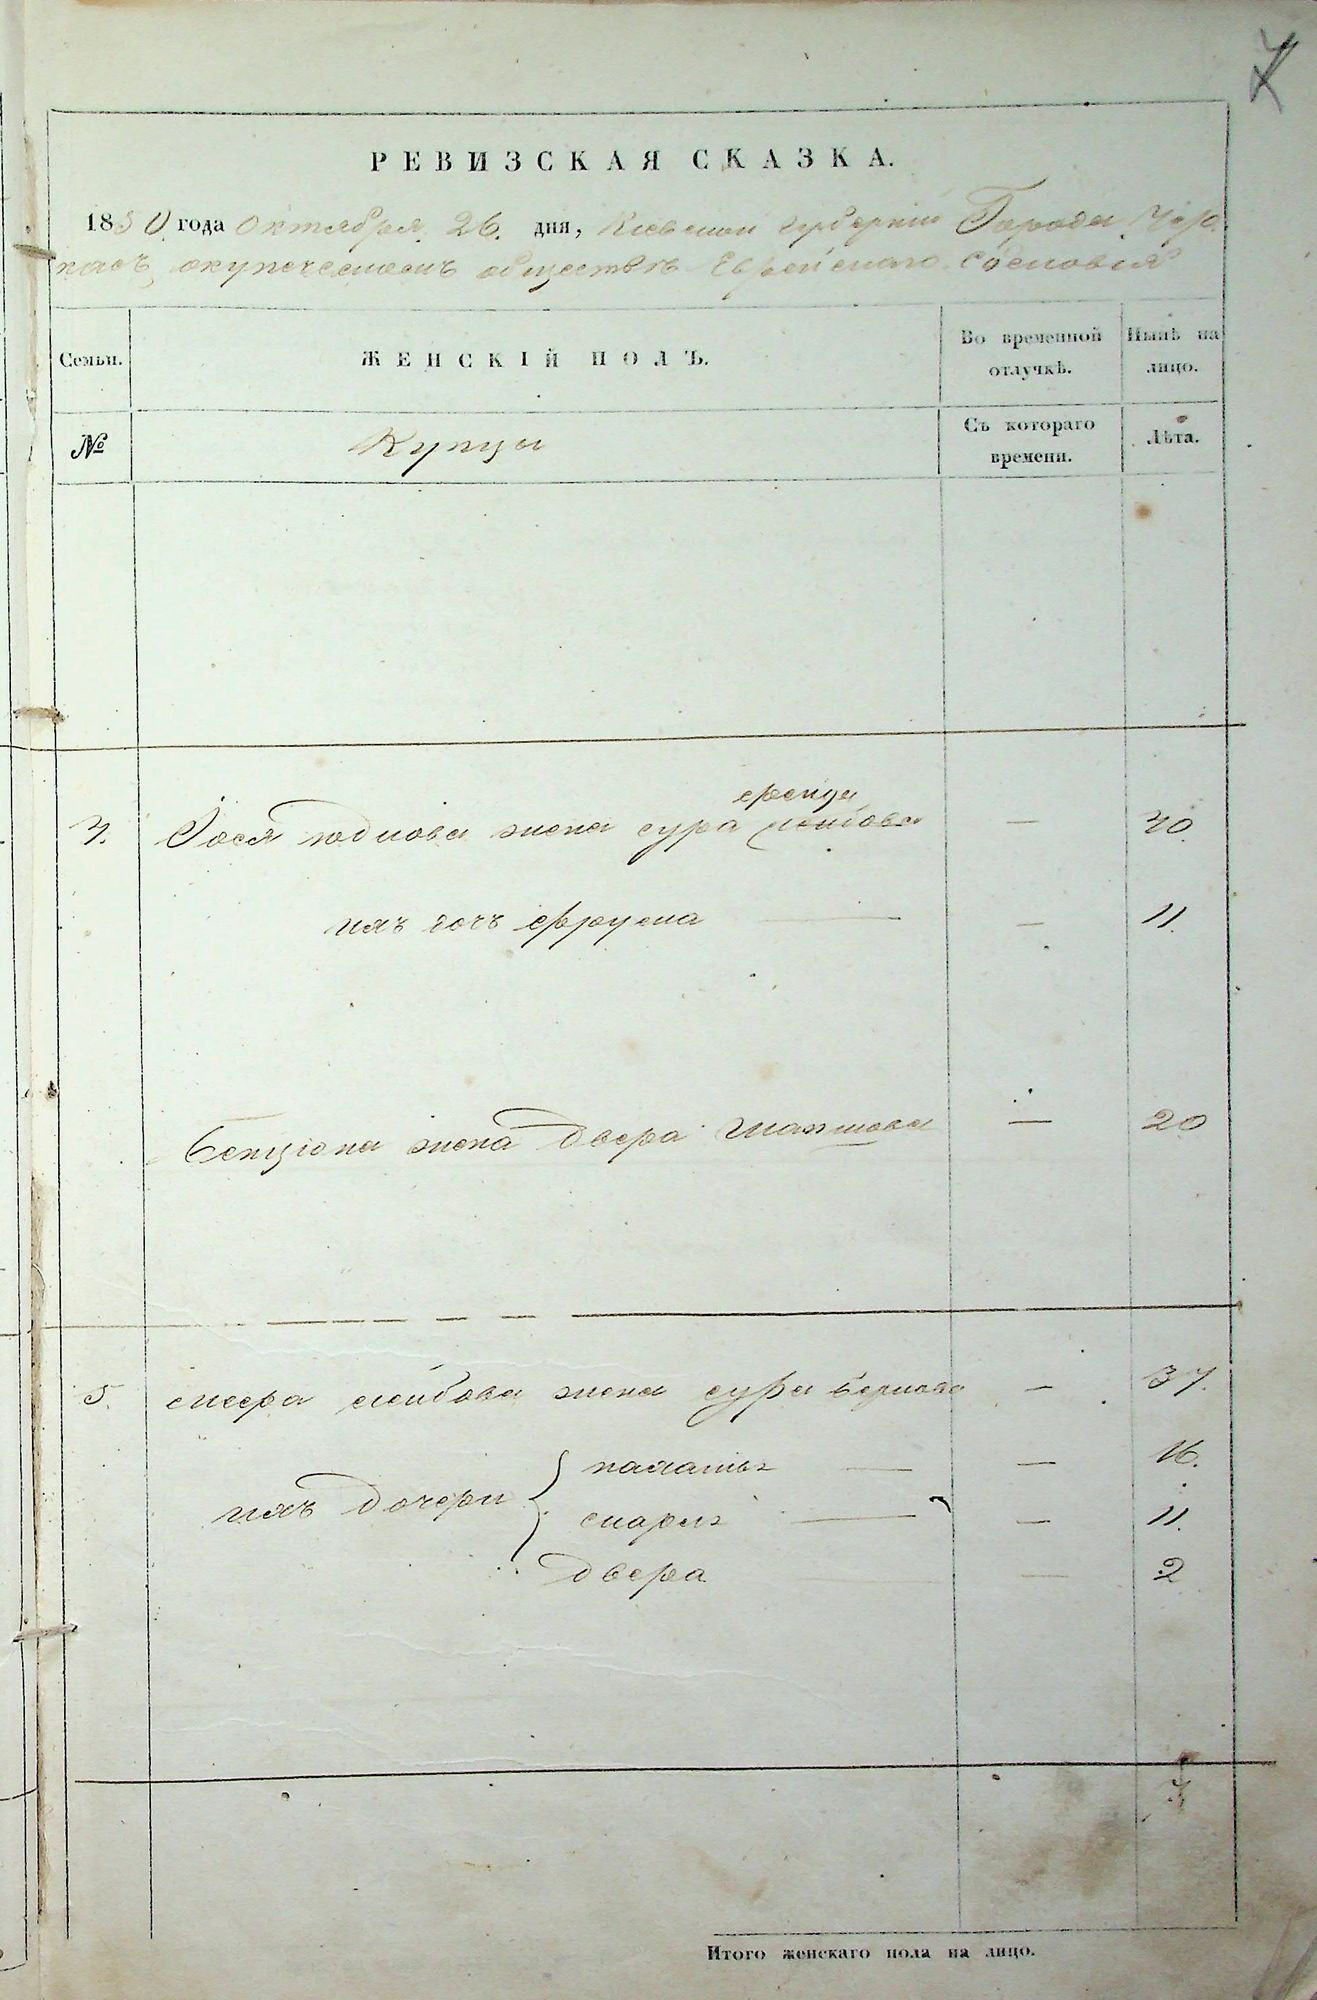 7
РЕВИЗСКАЯ СКАЗКА.
1850 года Октября 26. дня, Киевской губернии Города Чер
касъ, окупеческомъ обществѣ Еврейскаго Сословия
Семьи. ЖЕНСКІЙ ПОЛЪ. Во временной отлучкѣ. Нынѣ на лицо.
№ Купцы Съ котораго времени. Лѣта.
сренца
Іося жена сура лейбова — 40.
ихъ дочь фрума — — 11.
Бенціона жена Двера — 20
5. лейбова жена сура беркова — 37.
ихъ дочери — — 16.
— — 11.
двера — — 2
7
Итого женскаго пола на лицо.